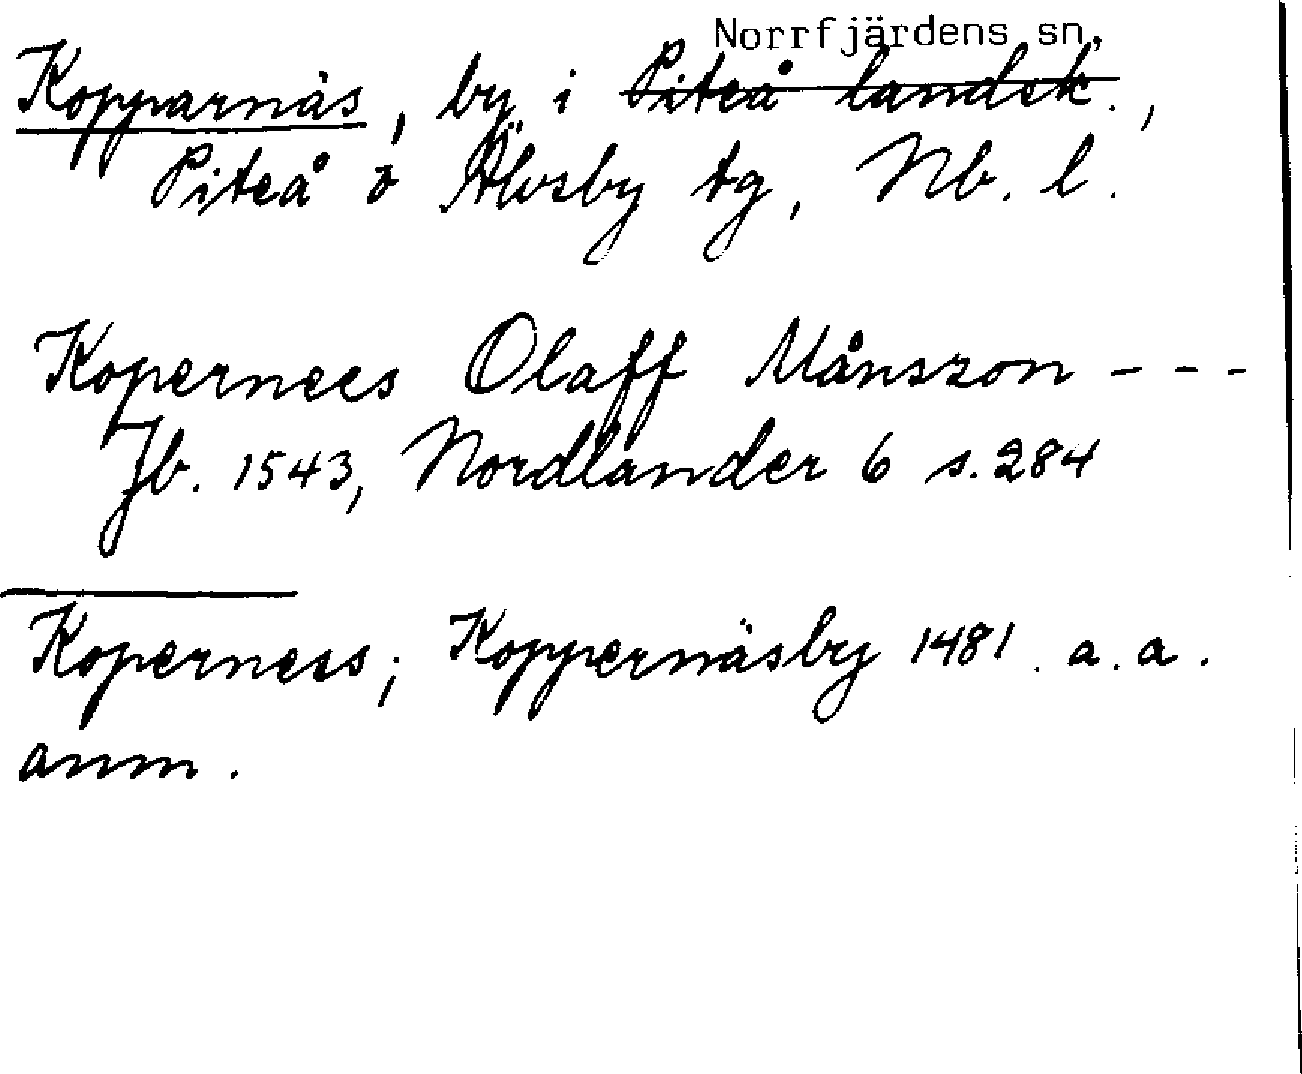 Norrfjärdens sn,
Kopparnäs, by i Piteå landsk.,
Piteå o Älvsby tg, Nb. l.
Kopernees Olaff Månszon - - -
Jb. 1543, Nordlander 6 s. 284
Koperness; Koppernäsby 1481. a. a.
anm.